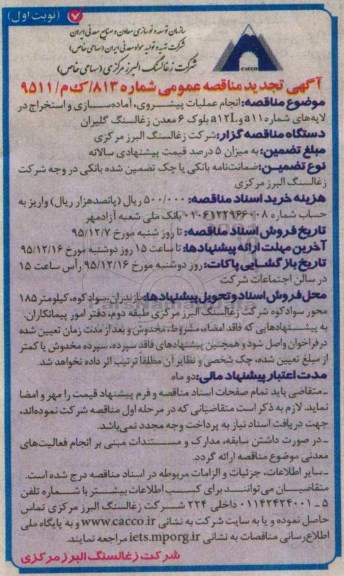 (نوبت اول)
سازمان توسعه و نوسازی معادن و صنایع معدنی ایران
شرکت تهیه و تولید مواد معدنی ایران (سهامی خاص)
شرکت زغالسنگ البرز مرکزی (سهامی خاص)
CACCO
آگهی تجدید مناقصه عمومی شماره ۸۱۳/ک م/۹۵۱۱
موضوع مناقصه: انجام عملیات پیشروی، آماده‌سازی و استخراج در
لایه‌های شماره a۱۱ و a۱۲L بلوک ۶ معدن زغالسنگ گلیران
دستگاه مناقصه گزار: شرکت زغالسنگ البرز مرکزی
مبلغ تضمین: به میزان ۵ درصد قیمت پیشنهادی سالانه
نوع تضمین: ضمانت‌نامه بانکی یا چک تضمین شده بانکی در وجه شرکت
زغالسنگ البرز مرکزی
هزینه خرید اسناد مناقصه: ۵۰۰/۰۰۰ ریال (پانصدهزار ریال) واریز به
حساب شماره ۰۱۰۶۱۲۲۹۶۶۰۰۸ بانک ملی شعبه آزادمهر
تاریخ فروش اسناد مناقصه: تا روز شنبه مورخ ۹۵/۱۲/۷
آخرین مهلت ارائه پیشنهادها: تا ساعت ۱۵ روز دوشنبه مورخ ۹۵/۱۲/۱۶
تاریخ بازگشایی پاکات: روز دوشنبه مورخ ۹۵/۱۲/۱۶ رأس ساعت ۱۵
در سالن اجتماعات شرکت
محل فروش اسناد و تحویل پیشنهادها: مازندران، سوادکوه، کیلومتر ۱۸۵
محور سوادکوه شرکت زغالسنگ البرز مرکزی طبقه دوم، دفتر امور پیمانکاران.
به پیشنهادهایی که فاقد امضاء، مشروط، مخدوش و بعد از مدت زمان تعیین شده
در فراخوان واصل شود و همچنین پیشنهادهای فاقد سپرده، سپرده مخدوش یا کمتر
از مبلغ تعیین شده، چک شخصی و نظایر آن مطلقاً ترتیب اثر داده نخواهد شد.
مدت اعتبار پیشنهاد مالی: دو ماه
- متقاضی باید تمام صفحات اسناد مناقصه و فرم پیشنهاد قیمت را مهر و امضا
نماید. لازم به ذکر است متقاضیانی که در مرحله اول مناقصه شرکت نموده‌اند،
جهت دریافت اسناد نیاز به پرداخت وجه مجدد نمی‌باشد.
- در صورت داشتن سابقه، مدارک و مستندات مبنی بر انجام فعالیت‌های
معدنی موضوع مناقصه ارائه گردد.
- سایر اطلاعات، جزئیات و الزامات مربوطه در اسناد مناقصه درج شده است.
متقاضیان می‌توانند برای کسب اطلاعات بیشتر با شماره تلفن
۵ - ۰۱۱۴۲۴۲۴۰۰۱ داخلی ۲۲۴ شرکت زغالسنگ البرز مرکزی تماس
حاصل نموده و یا به سایت شرکت به نشانی www.cacco.ir و به پایگاه ملی
اطلاع‌رسانی مناقصات به نشانی iets.mporg.ir مراجعه نمایند.
شرکت زغالسنگ البرز مرکزی